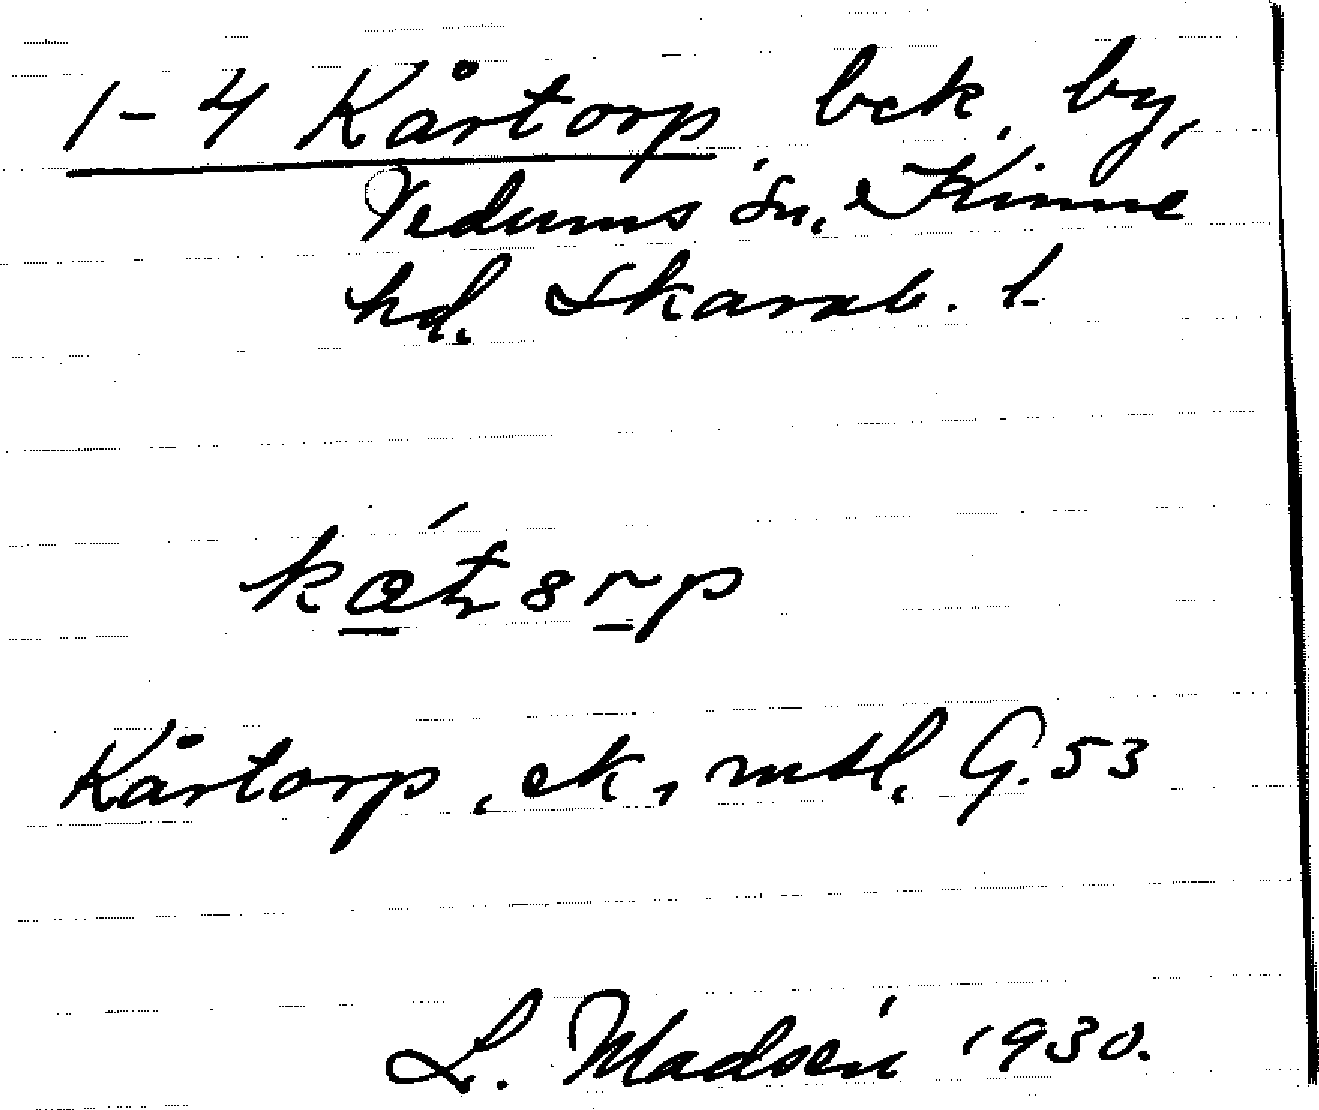 1-4 Kårtorp bek. by,
Vedums sn, Kinne
hd. Skarab. l.
Kårtorp, ek, mtl, G. 53
L. Madsén 1930.